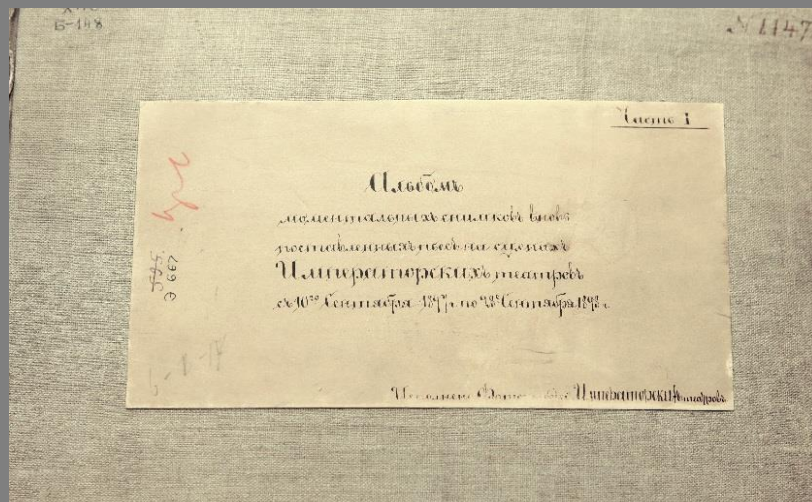 Б-148
№ 1147
Часть I
Альбомъ
моментальныхъ снимковъ вновь
поставленныхъ пьесъ на сценахъ
Императорскихъ театровъ
съ 10го Сентября 1897г. по 28е Сентября 1898г.
Исполнено Императорскихъ театровъ
Э 667